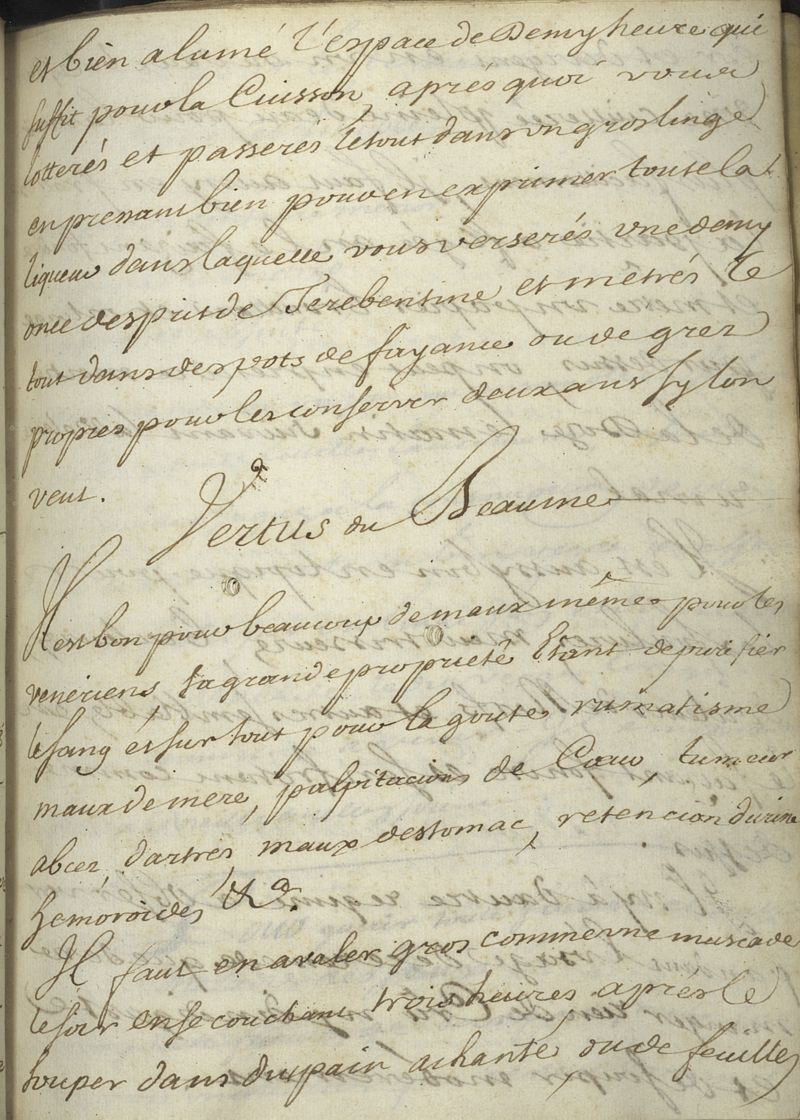 et bien alumé l'espace de Demy heure qui
suffit pour la Cuisson, aprés quoi vous
l'otterés et passerés le tout dans un gros linge
en pressant bien pour en exprimer toute la
liqueur dans laquelle vous verserés une demy
once desprit de Terebentine et metrés le
tout dans des pots de fayance ou de grez
propres pour les conserver deux ans sy lon
veut.
Vertus du Beaume
Il est bon pour beaucoup de maux même pour les
veneriens, sa grande proprieté Etant de purifier
le sang et sur tout pour la goute, rumatisme
maux de mere, palpitacions de Cœur, tumeur
abcez, dartres, maux destomac, retencion durine
hemoroides &ca.
Il faut en avaler gros comme une muscade
le soir en se couchant trois heures aprés le
souper dans du pain a chanté, ou de feuilles